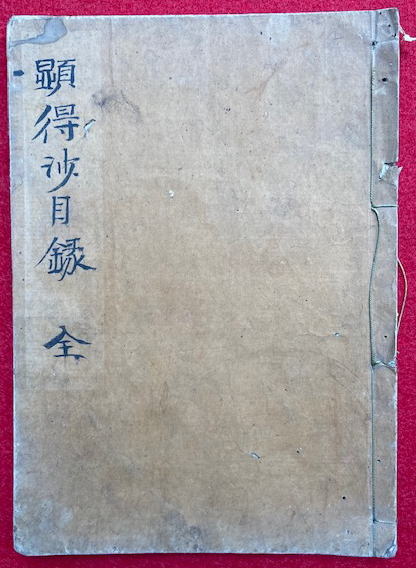 顕得沙目録 全